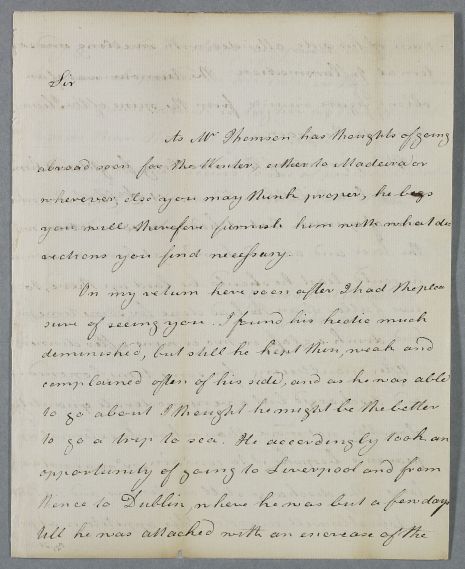 Sir
As Mr. Thomson has thoughts of going
abroad soon for the Winter, either to Madeira or
wherever else you may think proper, he begs
you will therefore furnish him with what di
rections you find necessary.
On my return here soon after I had the plea
sure of seeing you. I found his hectic much
diminished, but still he kept thin, weak and
complained often of his side, and as he was able
to go about I thought he might be the better
to go a trip to sea. He accordingly took an
opportunity of going to Liverpool and from
thence to Dublin, where he was but a few days
till he was attacked with an increase of the